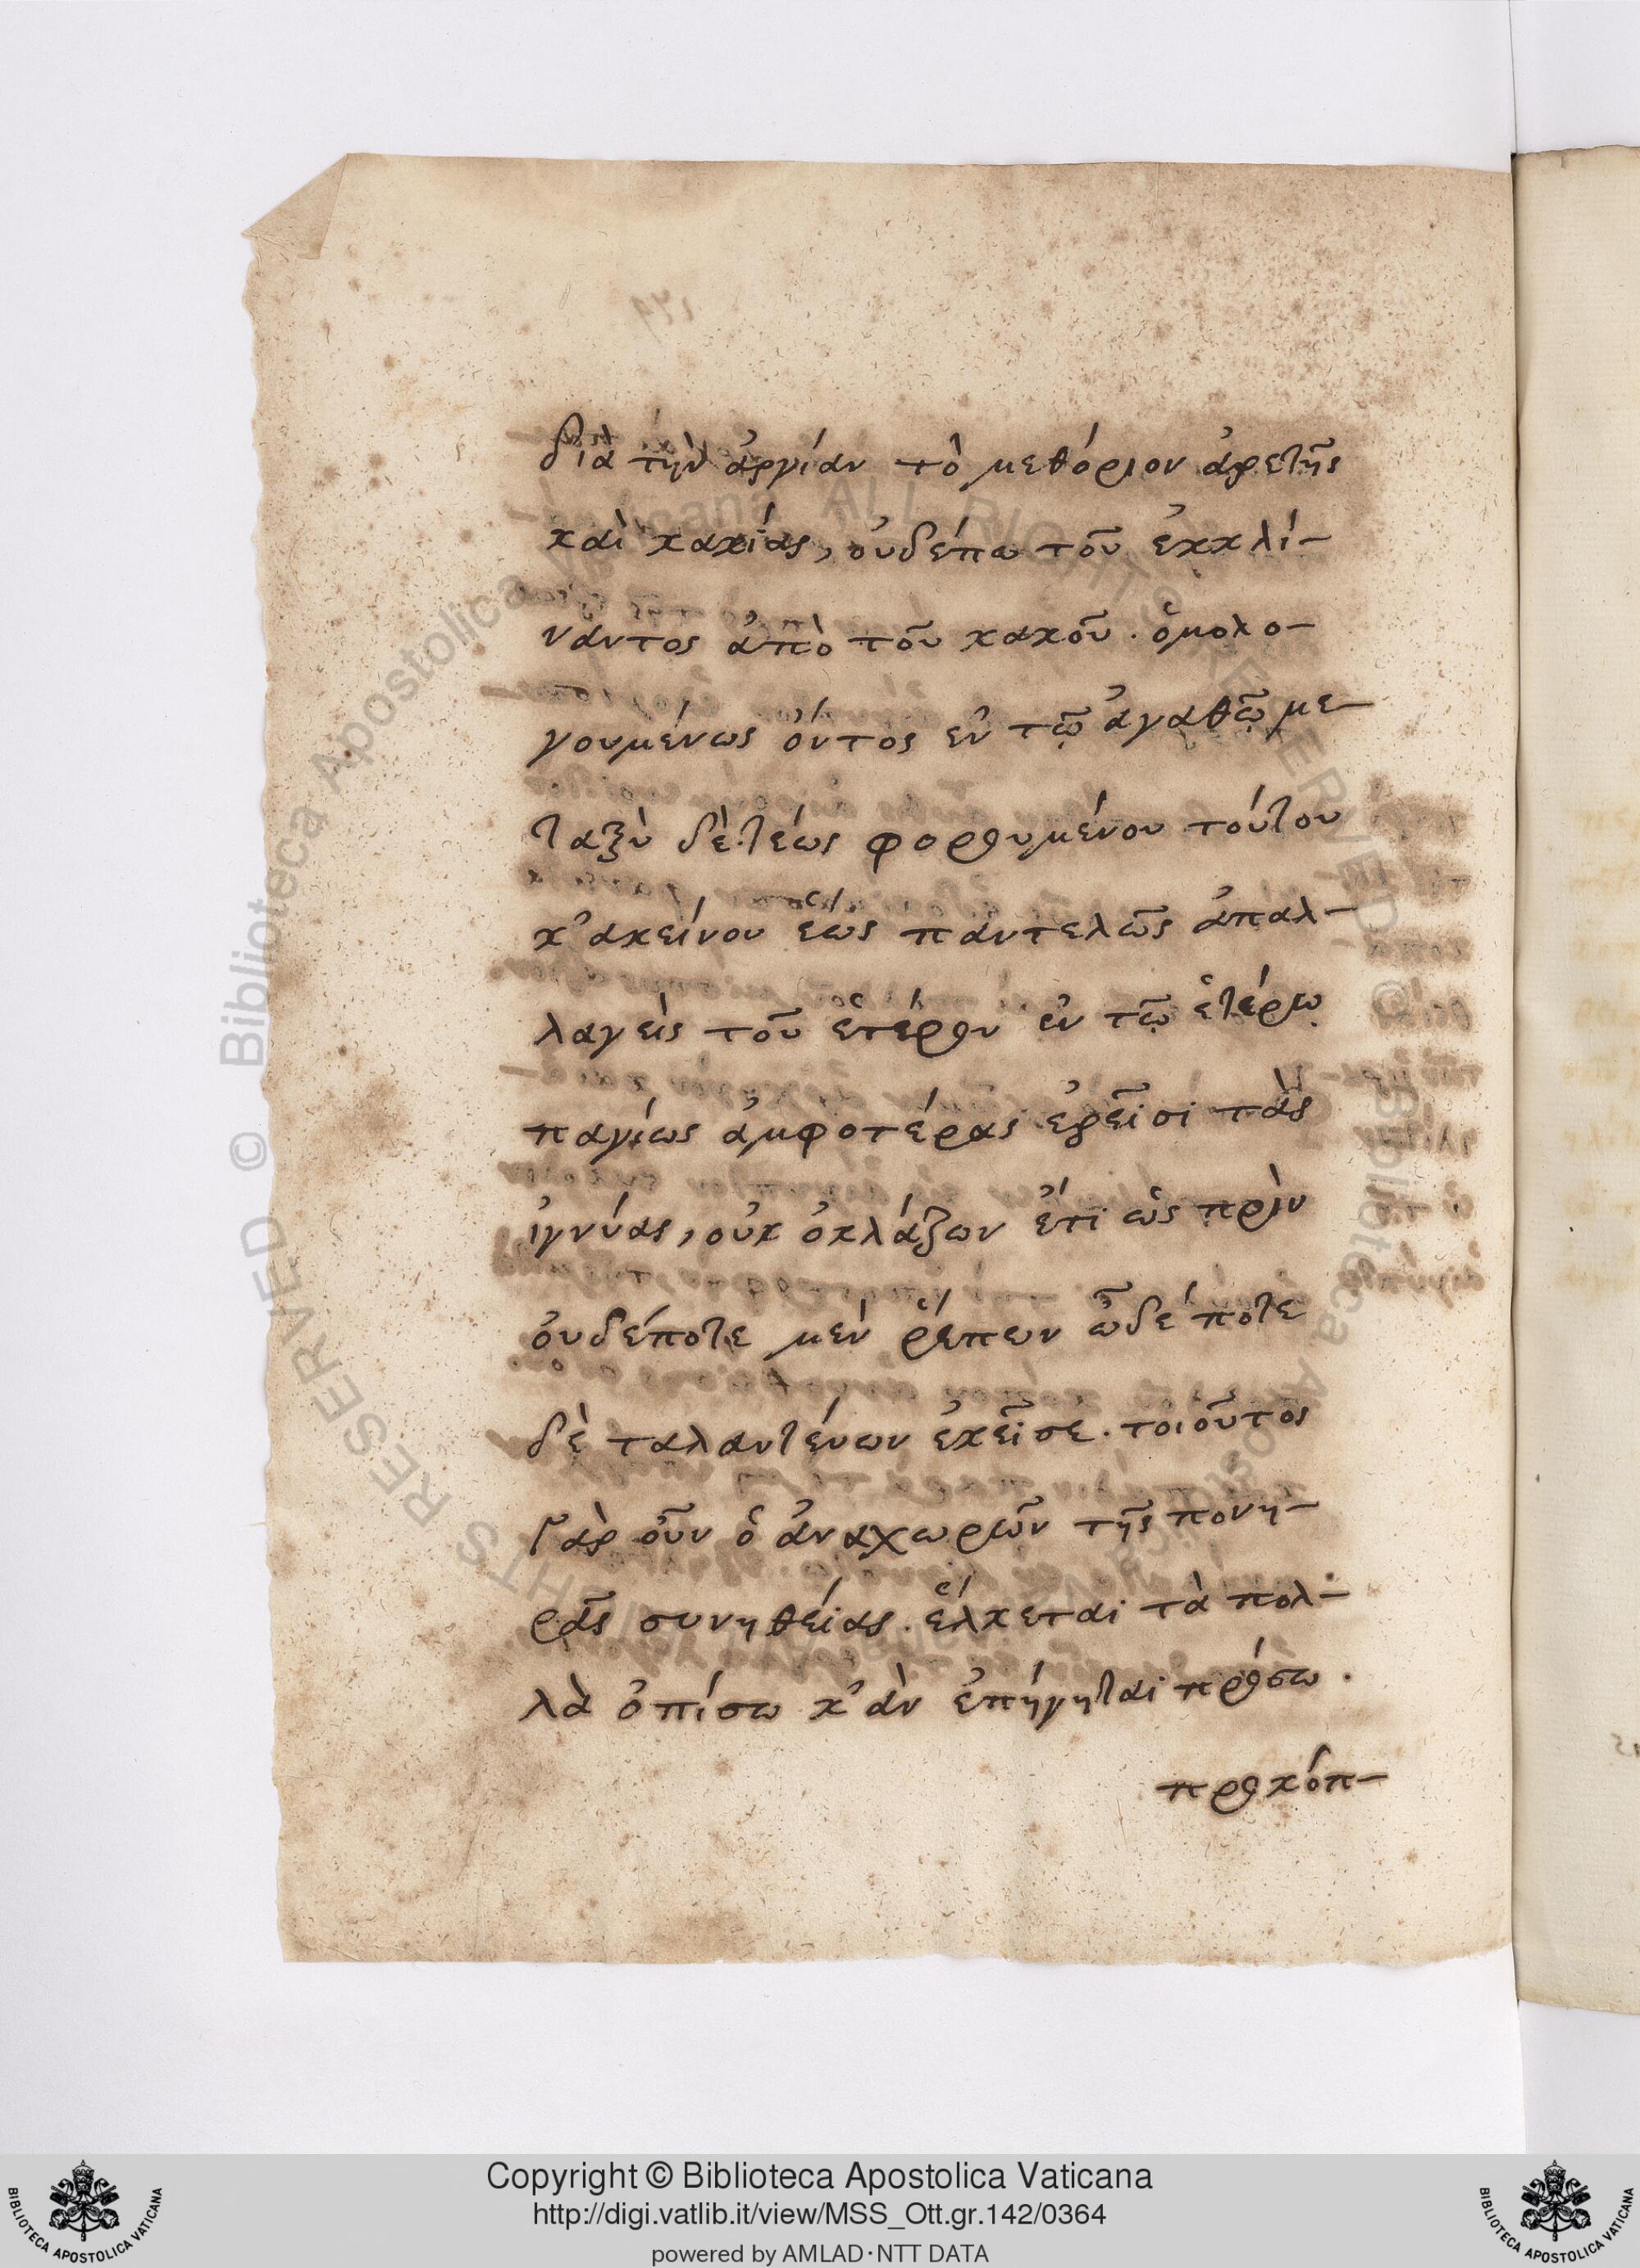 διὰ τὴν ἀργίαν τὸ μεθόριον ἀρετῆς
καὶ κακίας, οὐδέπω τοῦ ἐκκλί-
ναντος ἀπὸ τοῦ κακοῦ. ὁμολο-
γουμένως ὄντος ἐν τῷ ἀγαθῷ με-
ταξὺ δὲ τέως φορουμένου τούτου
κ'ακείνου ἕως παντελῶς ἀπαλ-
λαγεὶς τοῦ ἑτέρου ἐν τῷ ἑτέρῳ
παγίως ἀμφοτέρας ἐρείσι τὰς
ἰγνύας, οὐκ ὀκλάζων ἔτι ὡς πρὶν
οὐδέποτε μὲν ῥέπων ὧδέ ποτε
δὲ ταλαντεύων ἐκεῖσε. τοιοῦτος
γὰρ οὖν ὁ ἀναχωρῶν τῆς πονη-
ρᾶς συνηθείας. ἕλκεται τὰ πολ-
λὰ ὀπίσω κ'ὰν ἐπήγηται πρόσω.
προκόπ-
Copyright © Biblioteca Apostolica Vaticana
http://digi.vatlib.it/view/MSS_Ott.gr.142/0364
powered by AMLAD·NTT DATA
BIBLIOTECA APOSTOLICA VATICANA
BIBLIOTECA APOSTOLICA VATICANA